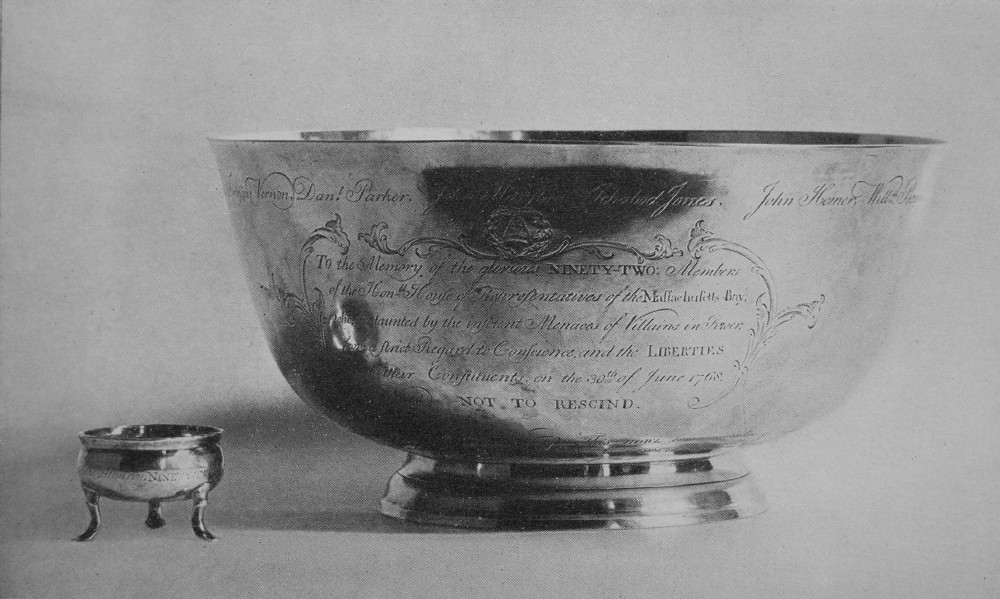 Vernon, Danl. Parker. John Ichabod Jones. John Homer, Willm.
To the Memory of the glorious NINETY-TWO: Members
of the Honbl. House of Representatives of the Massachusetts-Bay,
undaunted by the insolent Menaces of Villains in Power,
a strict Regard to Conscience, and the LIBERTIES
their Constituents, on the 30th of June 1768.
NOT TO RESCIND.
NINE